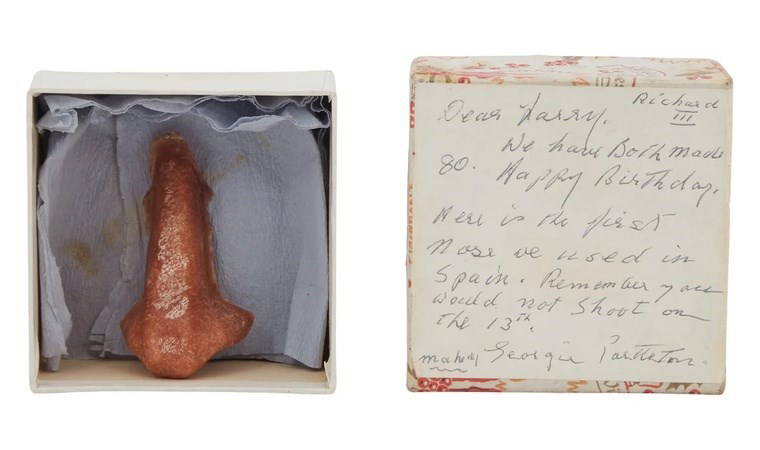 Dear Larry. Richard
III
We have Both made
80. Happy Birthday.
Here is the first
Nose we used in
Spain. Remember you
would not shoot on
the 13th.
Georgie Partleton.